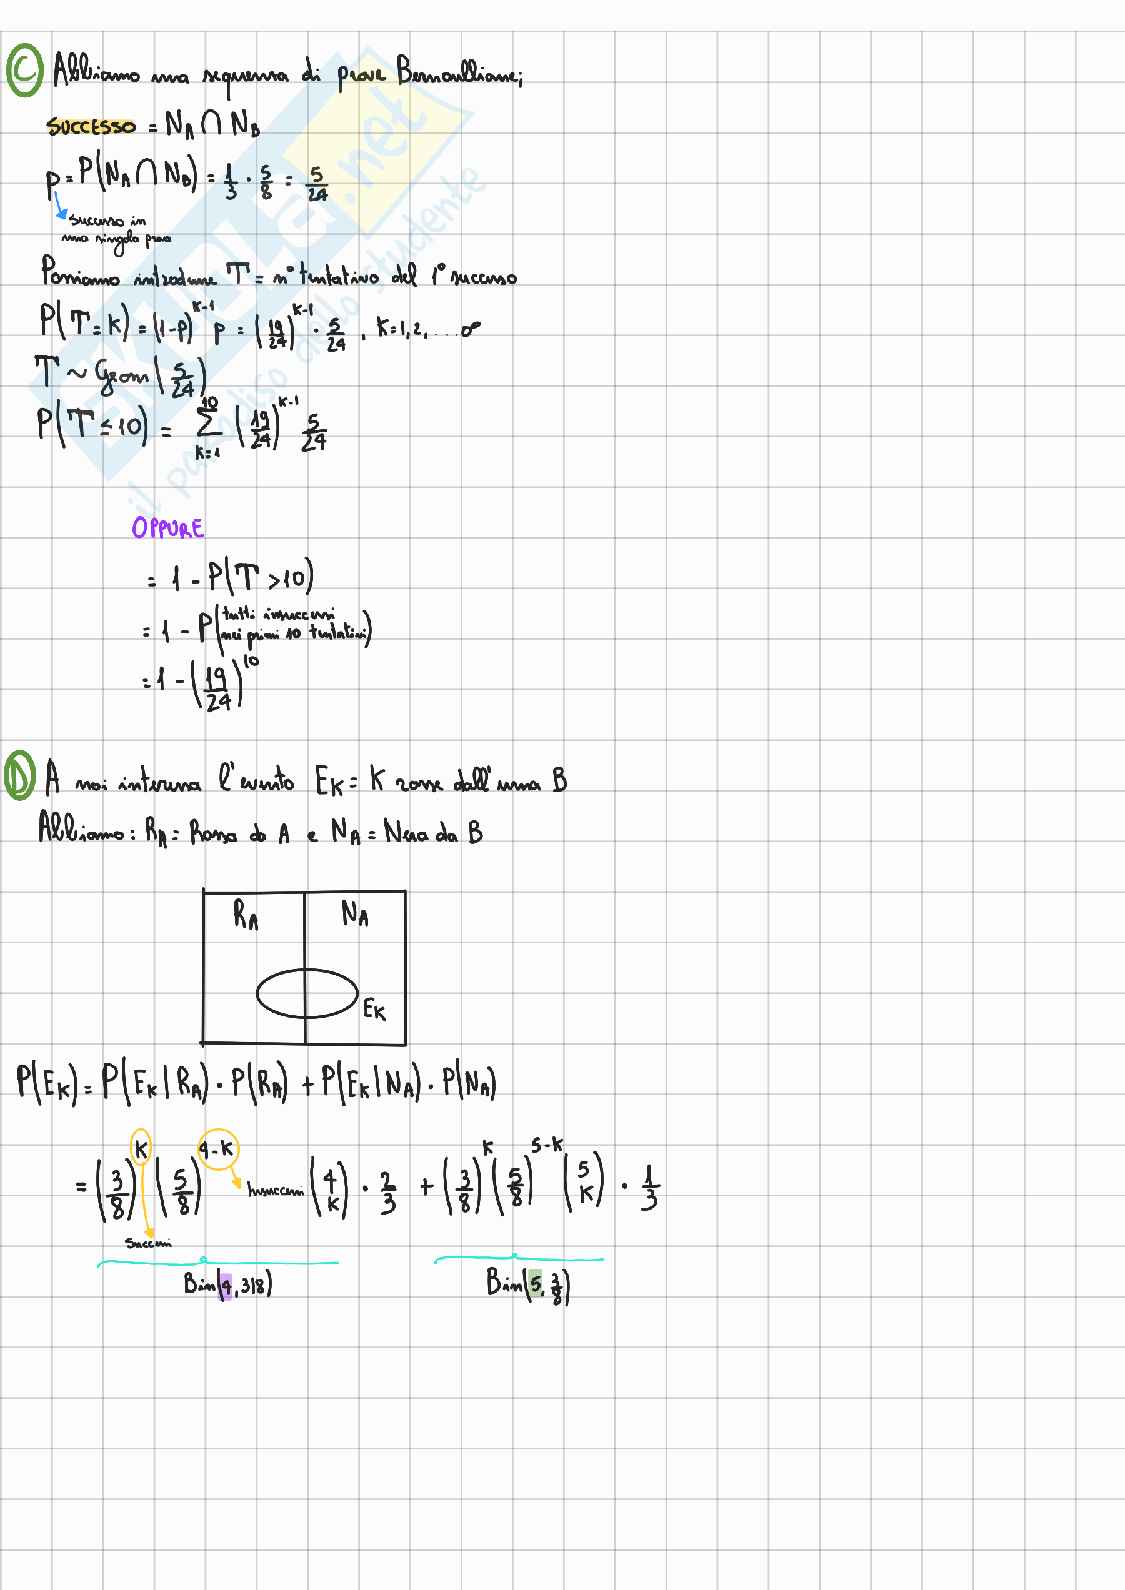 C Abbiamo una sequenza di prove Bernoulliane;
SUCCESSO = N_A ∩ N_B
p = P(N_A ∩ N_B) = 1/3 · 5/8 = 5/24
successo in
una singola prova
Possiamo introdurre T = n° tentativo del 1° successo
P(T = K) = (1-P)^{K-1} P = (19/24)^{K-1} · 5/24 , K=1, 2, .... ∞
T ~ Geom(5/24)
P(T ≤ 10) = ∑_{K=1}^{10} (19/24)^{K-1} 5/24
OPPURE
= 1 - P(T > 10)
= 1 - P(tutti insuccessi nei primi 10 tentativi)
= 1 - (19/24)^{10}
D A noi interessa l'evento E_K = K rosse dall'urna B
Abbiamo: R_A = Rossa da A e N_A = Nera da B
R_A N_A
E_K
P(E_K) = P(E_K | R_A) · P(R_A) + P(E_K | N_A) · P(N_A)
= (3/8)^K (5/8)^{4-K} insuccessi (4 K) · 2/3 + (3/8)^K (5/8)^{5-K} (5 K) · 1/3
successi
Bin(4, 3/8) Bin(5, 3/8)
SKUOLA.net
il paradiso dello studente